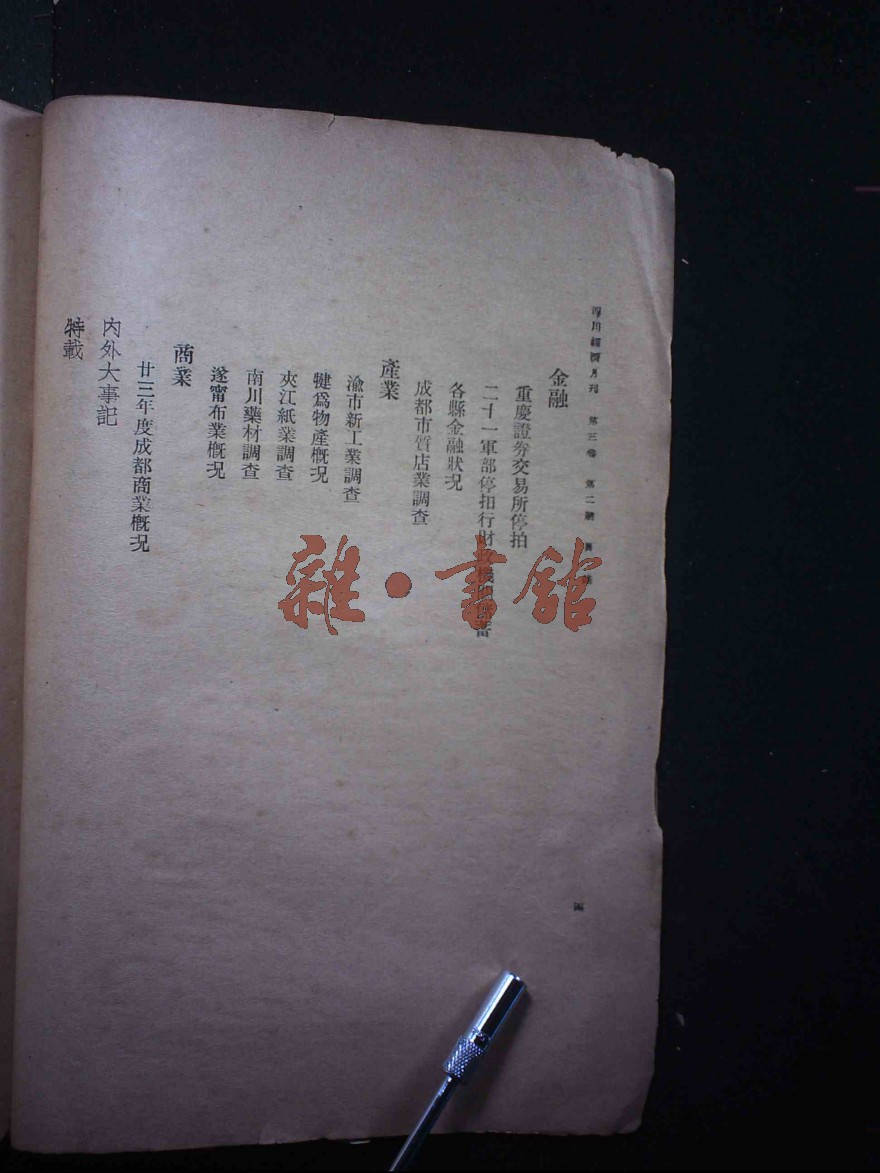 四川經濟月刊 第三卷 第二期 目錄
金融
重慶證券交易所停拍
二十一軍部停扣行財政機關借蓄
各縣金融狀況
成都市質店業調查
產業
渝市新工業調查
犍爲物產概況
夾江紙業調查
南川藥材調查
遂甯布業概況
商業
廿三年度成都商業概況
內外大事記
特載
四
雜·書館